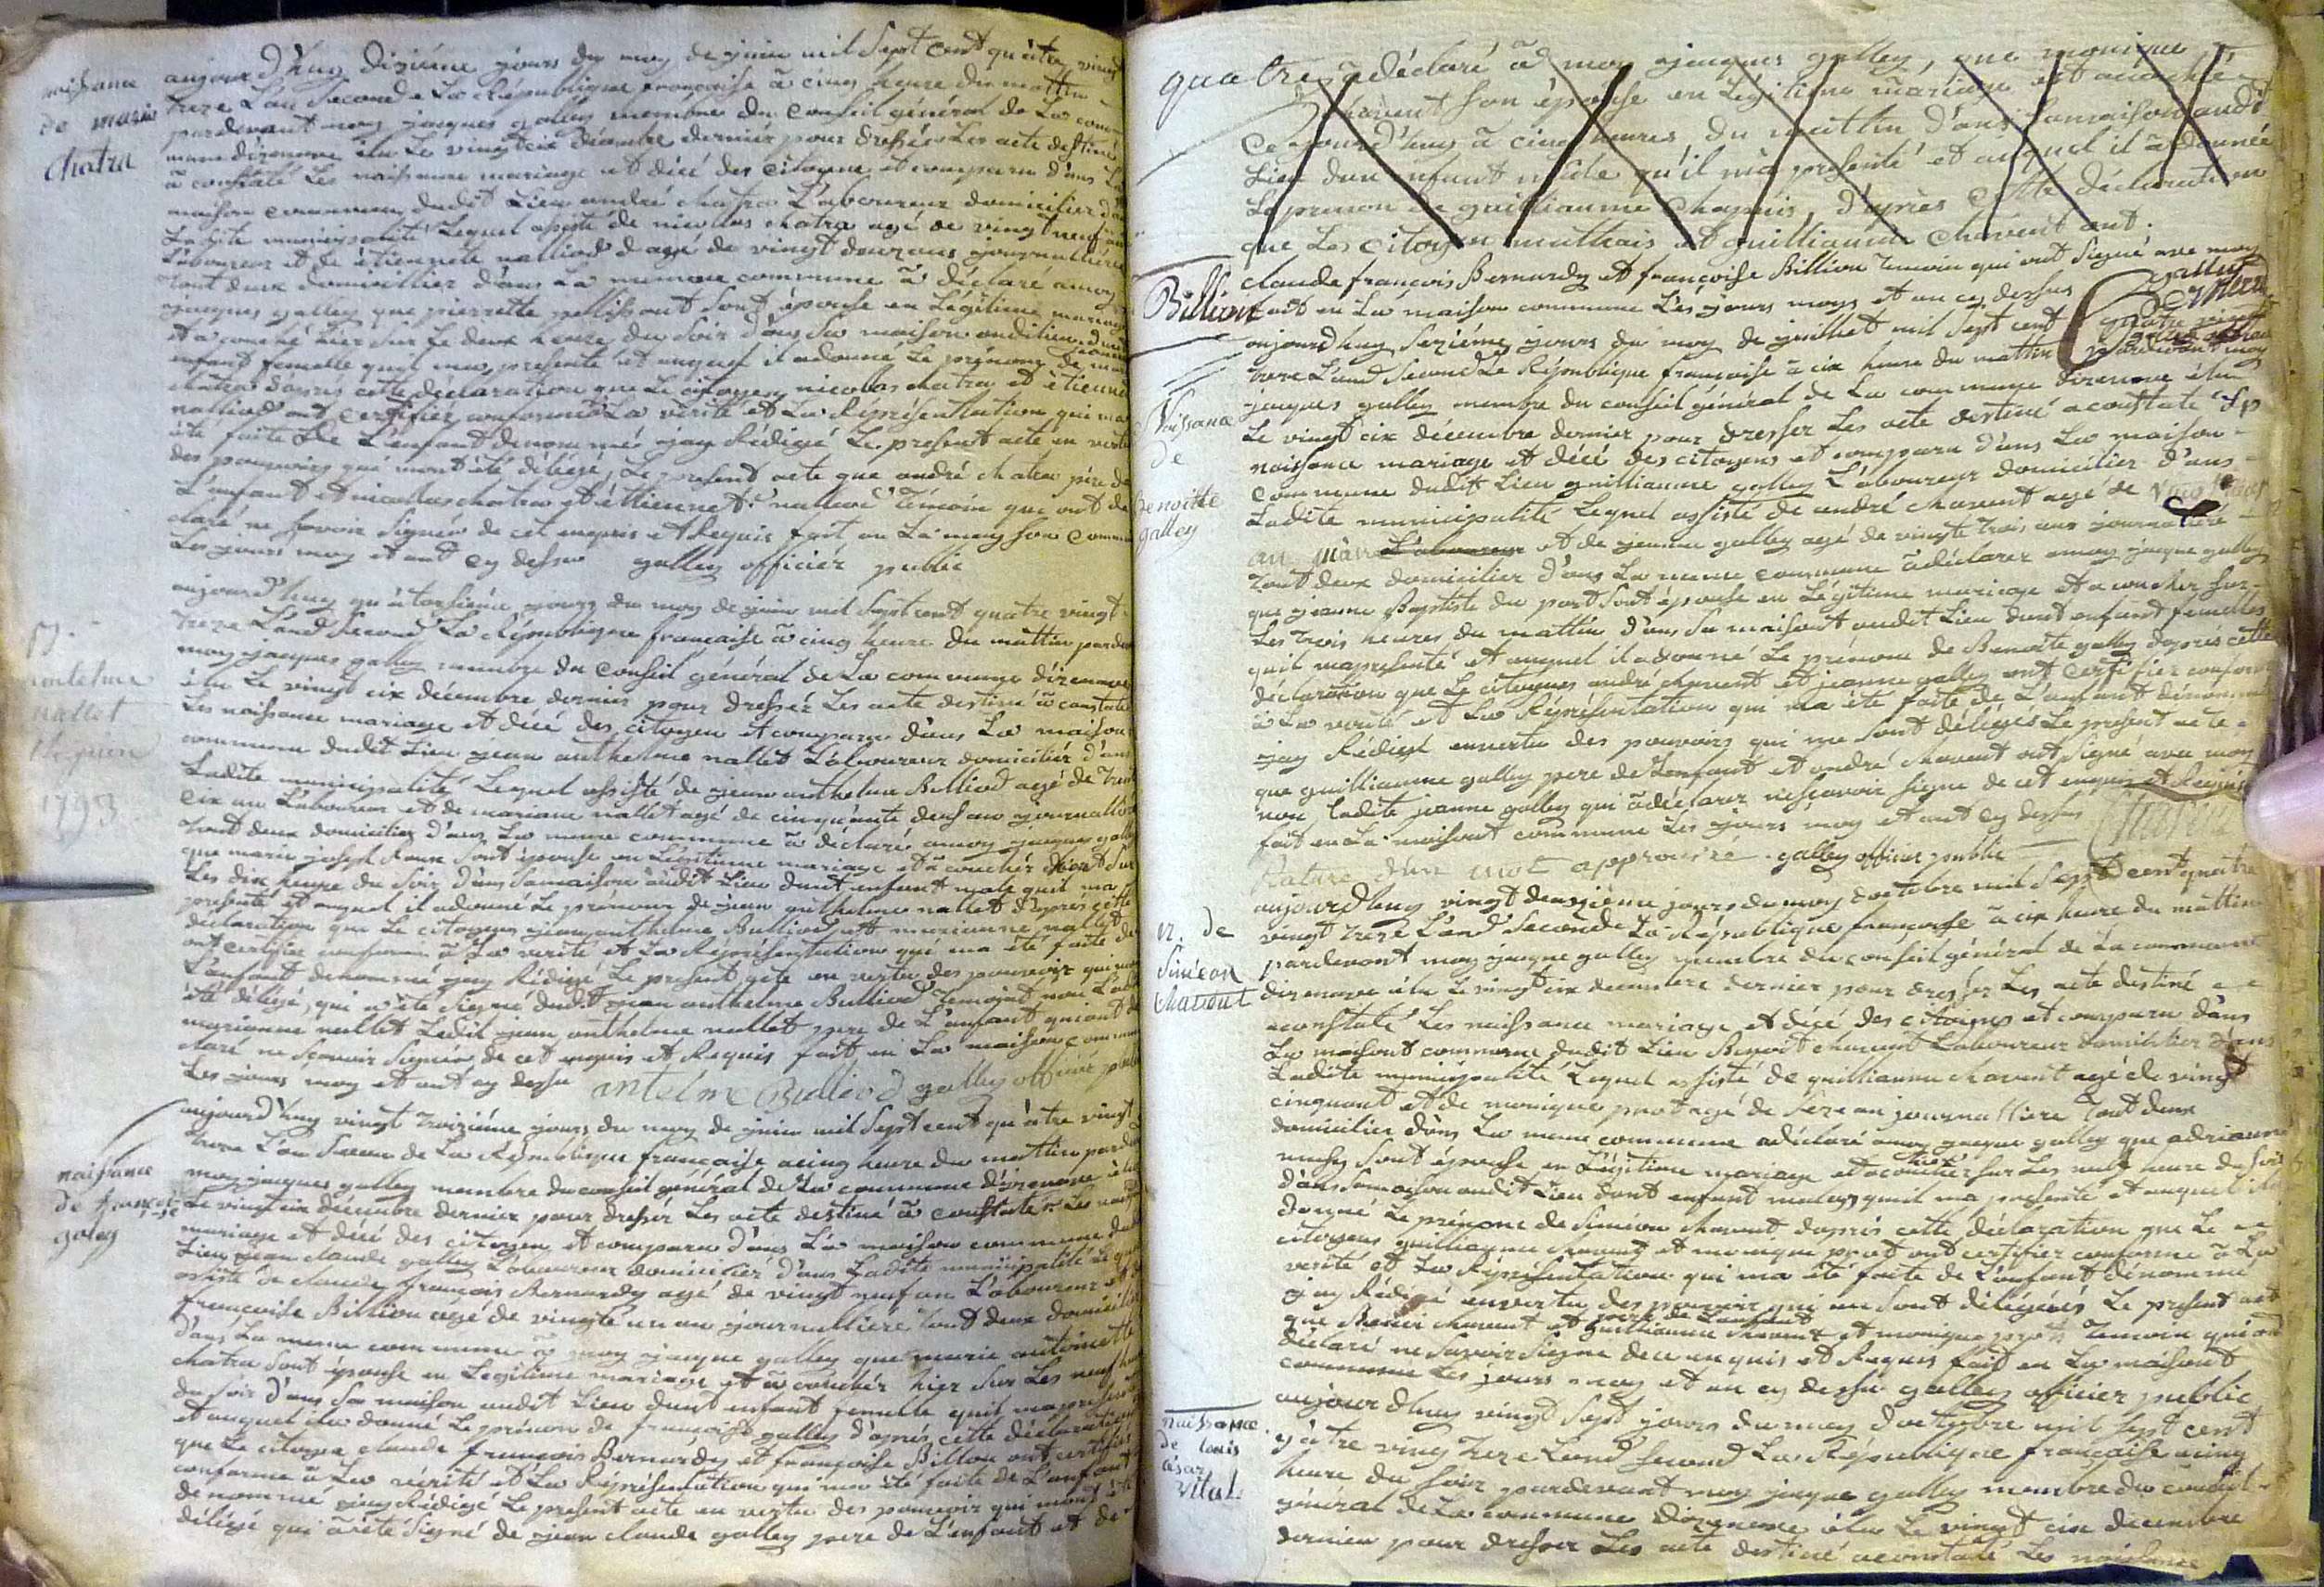 naissance
de marie
chatra
aujourd'huy dizième jours du moy de juin mil sept cent quatre vingt
treze L'an Second La République françoise à cinq heure du mattin
pardevant moy jacques galley membre du Conseil général de La com
mune dizenave élu Le vingt cix décembre dernier pour dressér Les acte destiné
à constaté Les naissance mariage et décé des Citoyens et comparu d'ans La
maison commune dudit Lieu andré chatra Laboureur domicilier d'ans
Ladite municipalité Lequel assisté de nicolas chatra agé de vingt neuf ans
Laboureur et de étiennete nalliod d'agé de vingt deux ans journallière
tout deux domicillier d'ans La meme commune à déclaré amoy
jacques galley que pierrette pellissont sont épouse en Légitime mariage
et acouché hier sur Le deux heure du soir d'ans sa maison audit lieu dunt
enfant femelle quil ma présenté et auquel il adonné Le prénom de marie
chatra dapres cette déclaration que Le citoyen nicolas chatra et étiennete
nalliod ont certifier conforme à La vérité et La Réprésentation qui ma
été faite de L'enfant dénommé jay Rédigé Le present acte en vertu
des pouvoirs qui mont été délégé, Le present acte que andré chatra père de
L'enfant et nicolas chatra et étiennete nalliod Témoin qui ont dé
claré ne savoir signér de cet enquis et Requis fait en La mayson commune
Les jours moy et ant cy dessu galley officiér public
aujourd'huy quatorsième jours du moy de juin mil sept cent quatre vingt
treze L'and Second La République française à cinq heure du mattin parde
moy jacques galley membre du Conseil général de La commune dizenave
élu Le vingt cix décembre dernier pour dressér Les acte destiné à constaté
Les naissance mariage et décé des citoyen et comparu d'ans La maison
commune dudit Lieu jean anthelme nallet Laboureur domiciliér d'ans
Ladite municipalité Lequel assisté de jean anthelme Bulliod agé de trente
cix an Laboureur et de mariane nallet agé de cinquante deux an journallière
tout deux domicilier d'ans La meme commune à déclaré amoy jacques galley
que marie joseph Roux sont épouse en Légitime mariage et à couchér hier sur
Les dix heure du soir d'ans samaison audit Lieu dunt enfant male quil ma
présenté et auquel il adonné Le prénom de jean anthelme nallet d'apres cette
déclaration que Le citoyens jean anthelme Bulliod et marianne nallet
ont certifier conforme à La verité et La Réprésentation qui ma été faite de
L'enfant denommé jay Rédigé Le present acte en vertu des pouvoir qui mont
été délégé, qui a été signé dudit jean anthelme Bulliod temoint non Ladite
marianne nallet Ledit jean anthelme nallet pere de L'enfant qui ont dé
claré ne scavoir signér de cet enquis et Requis fait en La maison commune
Les jours moy et ant cy dessu antelme Bulliod galley officié public
nallet
1793
naissance
de françoise
galley
aujourd'huy vingt troizième jours du moy de juin mil sept cent quatre vingt
treze L'an Second de La République française acinq heure du mattin parde
moy jacques galley membre du conseil général de La commune dizenave élu
Le vingt cix décembre dernier pour dressér Les acte destiné à constatér Les naissance
mariage et décé des citoyen et comparu d'ans La maison commune dudit
Lieu jean claude galley Laboureur domiciliér d'ans Ladite municipalité Lequel
assisté de claude françois Bernardy agé de vingt neuf an Laboureur et de
françoise Billion agé de vingte un an journalliere tout deux domicilier
d'ans La meme commune à moy jacque galley que marie antoinette
chatra sont épouse en Légitime mariage et à couchér hier sur Les neuf heure
du soir d'ans sa maison audit Lieu dunt enfant femelle quil ma présenté
et auquel ila donné Le prénon de françoise galley d'apres cette déclaration
que Le citoyen claude françois Bernardy et françoise Billon ont certifier
conforme à La vérité et La Réprésentation qui ma été faite de L'enfant
dénommé jay Rédigé Le present acte en vertu des pouvoir qui mont été
délégé qui à été signé de jean claude galley pere de L'enfant et de
quatre à déclaré à moy jacques galley, que monique
chavent son épouse en Légitime mariage est acouchée
Ce jourd'huy à cinq heures du mattin d'ans samaison audit
Lieu dun enfant mâle qu'il mà présenté et auquel il à donnée
Le prenon de guilliaume Chapuis, d'après cette déclaration
que Les Citoyen mathais et guilliaume Chavent ont.
claude françois Bernardy et françoise Billion temoin qui ont signé ave moy
Billion fait en La maison commune Les jours moys et an cy dessus galley
aujourd'huy seziéme jours du moy de juillet mil sept cent quatre vingt
treze L'and Second La République française à cix heure du mattin pardevant moy
jacques galley membre du conseil général de La commune dizenave élu
Le vingt cix décembre dernier pour dresser Les acte destiné a constaté Les
naissance mariage et décé des citoyens et comparu d'ans La maison
Commune dudit Lieu guilliaume galley Laboureur domicilier d'ans
Ladite municipalité Lequel assisté de andré chavent agé de
Laboureur et de jeanne galley agé de vingte trois ans journaliere
tout deux domicilier d'ans La meme commune à déclarer amoy jacque galley
que jeanne Baptiste du port sont épouse en Légitime mariage et a coucher sur
Les trois heures du mattin d'ans sa maisont audit Lieu dunt enfant femelle
quil mapresenté et auquel il adonné Le prénom de Benoite galley dapres cette
déclaration que Le citoyens andré chavent et jeanne galley ont certifier conforme
à La verité et La Réprésentation qui ma été faite de L'enfant dénommé
jay Rédigé envertu des pouvoirs qui me sont délégés Le present acte
que guilliaume galley pere de Lenfant et andré chavent ont signé ave moy
non Ladite jeanne galley qui à déclarer nescavoir signe de cet enquis et Requis
fait en La maisont commune Les jours moy et ant cy dessus
Rature d'un mot approuvé galley officier public
Naissance
de
Benoitte
galley
aujourd'huy vingt deuzième jours du moy doctobre mil sept cent quatre
vingt treze L'and Seconde La République françoise à cix heure du mattin
pardevant moy jacque galley membre du conseil général de La commune
dizenave élu Le vingt cix decembre dernier pour dresser Les acte destiné
aconstaté Les naissance mariage et décé des citoiens et comparu dans
La maisont commune dudit Lieu Benoit chavent Laboureur domicilier dans
Ladite municipalité Lequel assisté de guilliaume chavent agé de vingt
cinquant et de monique prot agé de seze an journalliere tout deux
domicilier dans La meme commune adéclaré amoy jacque galley que adrianne
sont épouse en Légitime mariage et acouchér hier sur Les neuf heure du soir
d'ans samaison audit Lieu dont enfant male quil ma présenté et auquel il a
donné Le prénom de Siméon chavent dapres cette déclaration que Le
citoyens guilliaume chavent et monique prot ont certifier conforme à La
verité et La Réprésentation qui ma été faite de L'enfant dénommé
jay Rédigé envertu des pouvoir qui me sont délégués Le present acte
que Benoit chavent pere de L'enfant et guilliaume chavent et monique prot temoin qui ont
déclaré ne savoir signe dece enquis et Requis fait en La maisont
commune Les jours moy et an cy dessu galley officier public
n. de
Siméon
chavent
aujourd'huy vingt sept jours du moy doctobre mil sept cent
quatre ving treze Land second La République française acinq
heure du soir pardevant moy jacque galley membre du conseil
général de La commune dizenave élu Le vingt cix decembre
dernier pour dresser Les acte destiné aconstaté Les naissance
naissance
de louis
césar
Vital